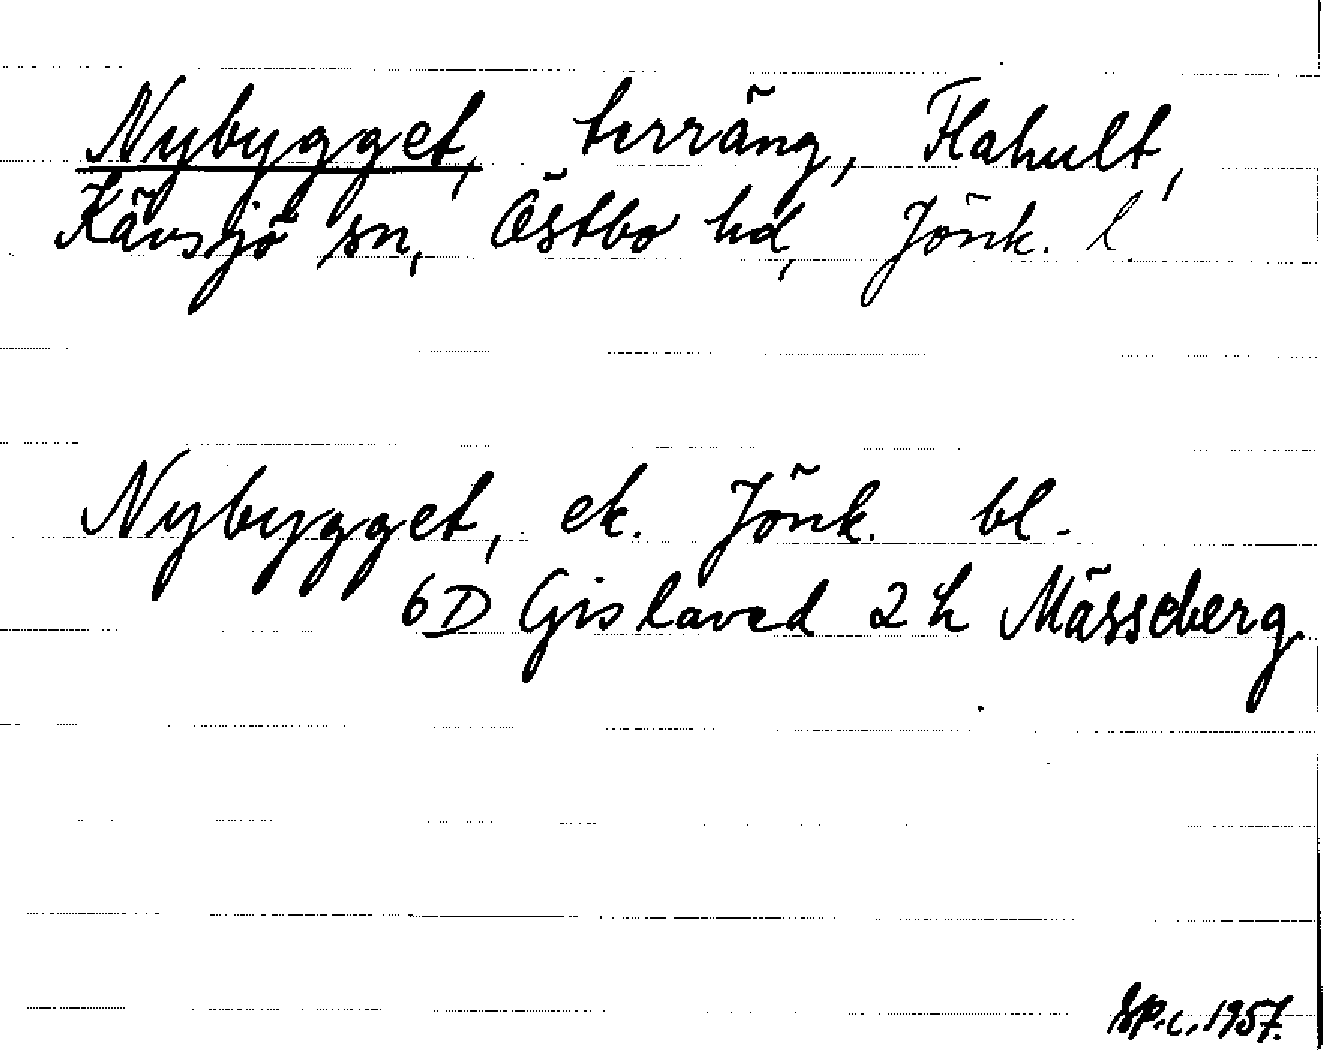 Nybygget, terräng, Flahult,
Kävsjö sn, Östbo hd, Jönk. l.
Nybygget, ek. Jönk. bl.
6D Gislaved 2h Mässeberg
1957.